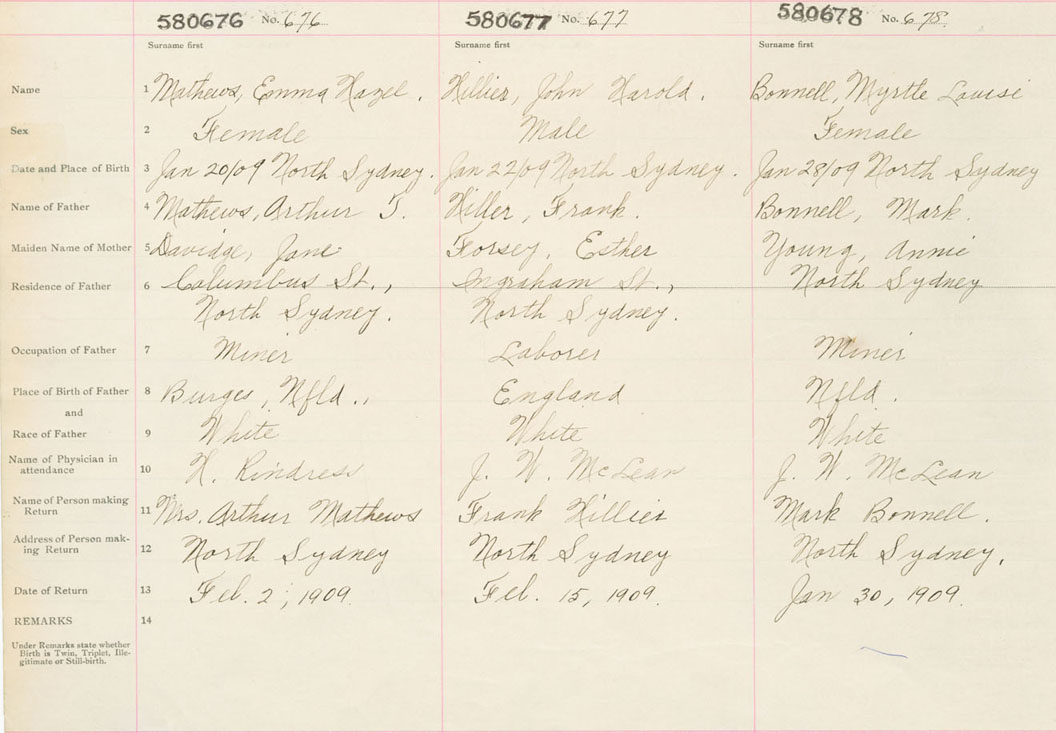 580676 No. 676 580677 No. 677 580678 No. 678
Surname first Surname first Surname first
Name 1 Mathews, Emma Hazel. Hillier, John Harold. Bonnell, Myrtle Louise
Sex 2 Female Male Female
Date and Place of Birth 3 Jan 20/09 North Sydney. Jan 22/09 North Sydney. Jan 28/09 North Sydney
Name of Father 4 Mathews, Arthur T. Hiller, Frank. Bonnell, Mark.
Maiden Name of Mother 5 Davidge, Jane Forsey, Esther Young, Annie
Residence of Father 6 Columbus St., Ingraham St., North Sydney
North Sydney. North Sydney.
Occupation of Father 7 Miner Laborer Miner
Place of Birth of Father 8 Burges, Nfld., England Nfld.
and
Race of Father 9 White White White
Name of Physician in
attendance 10 H. Rindress J. W. McLean J. W. McLean
Name of Person making
Return 11 Mrs. Arthur Mathews Frank Hillier Mark Bonnell.
Address of Person mak-
ing Return 12 North Sydney North Sydney North Sydney.
Date of Return 13 Feb. 2, 1909. Feb. 15, 1909. Jan 30, 1909.
REMARKS 14
Under Remarks state whether
Birth is Twin, Triplet, Ille-
gitimate or Still-birth.